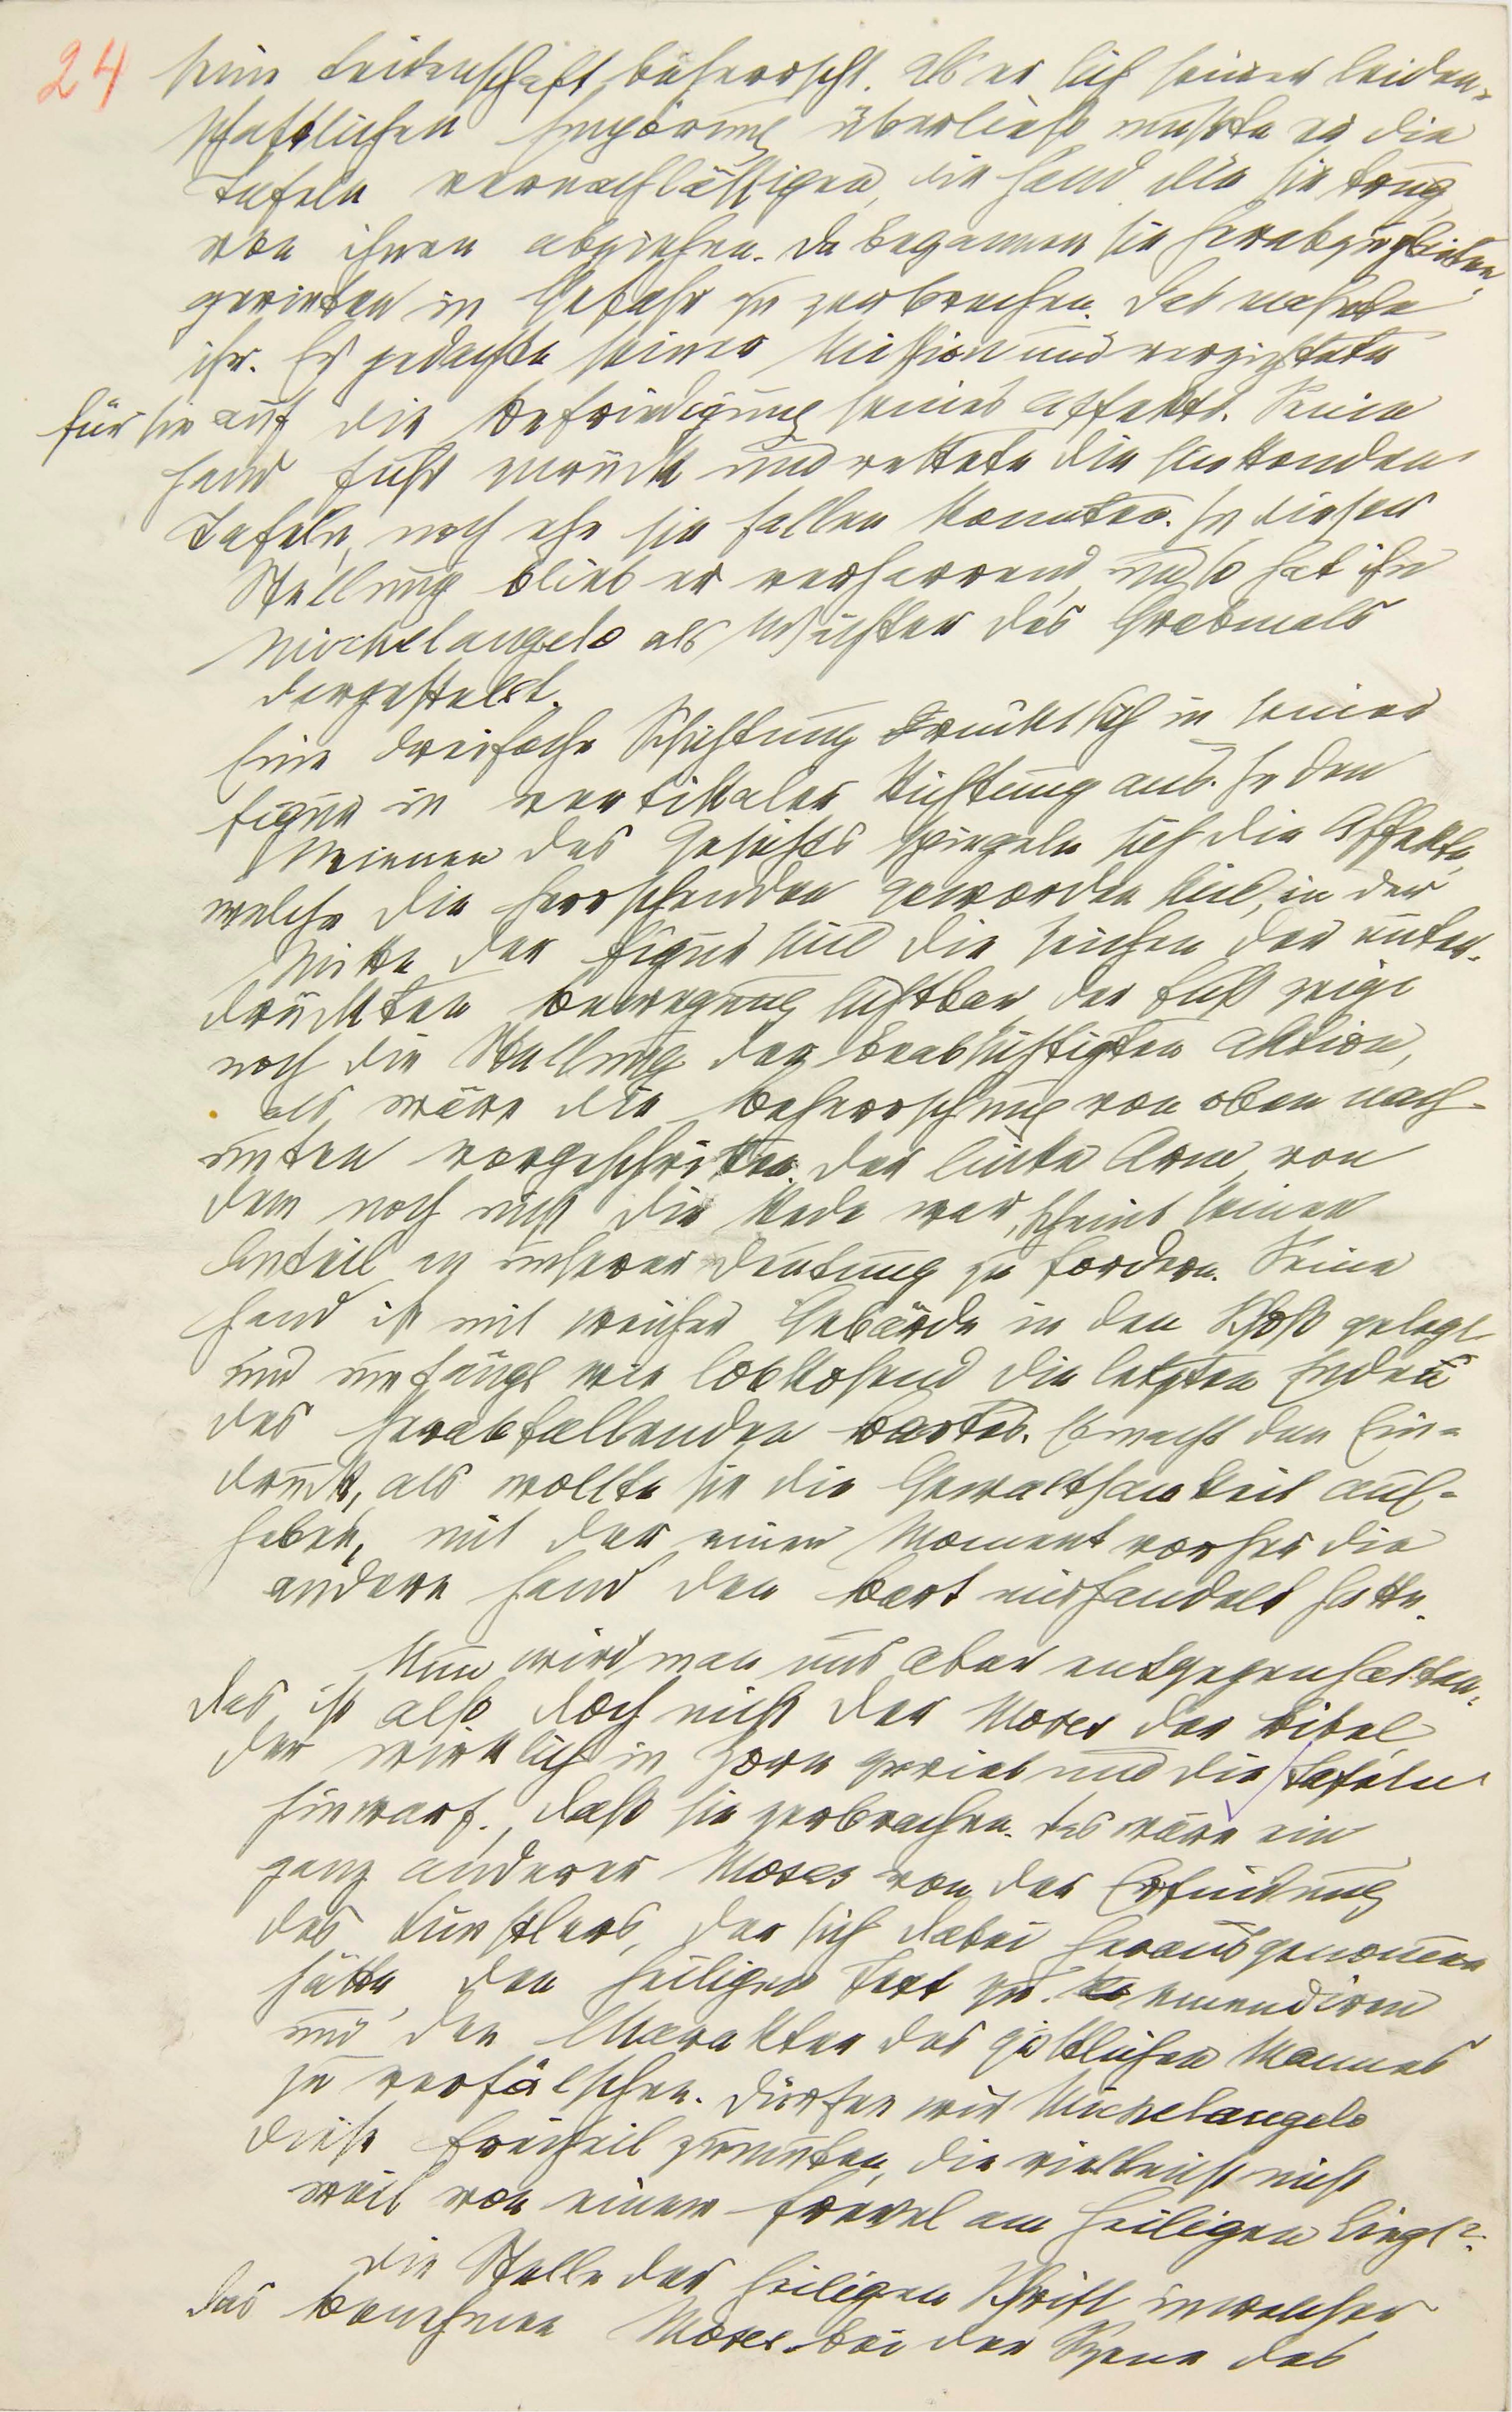 24
seine Leidenschaft beherrscht. Als er sich seiner leiden-
schaftlichen Empörung überließ mußte er die
Tafeln vernachlässigen, die Hand die sie trug
von ihnen abziehen. Da begannen sie herabzugleiten,
gerieten in Gefahr zu zerbrechen. Das mahnte
ihn. Er gedachte seiner Mission und verzichtete
für sie auf die Befriedigung seines Affekts. Seine
Hand fuhr zurück und rettete die sinkenden
Tafeln, noch ehe sie fallen konnten. In dieser
Stellung blieb er verharrend, und so hat ihn
Michelangelo als Wächter des Grabmals
dargestellt.
Eine dreifache Schichtung drückt sich in seiner
Figur in vertikaler Richtung aus. In den
Mienen des Gesichts spiegeln sich die Affekte,
welche die herrschenden geworden sind, in der
Mitte der Figur sind die Zeichen der unter-
drückten Bewegung sichtbar, der Fuß zeigt
noch die Stellung der beabsichtigten Aktion,
als wäre die Beherrschung von oben nach
unten vorgeschritten. Der linke Arm, von
dem noch nicht die Rede war, scheint seinen
Anteil an unserer Deutung zu fordern. Seine
Hand ist mit weicher Gebärde in den Schoß gelegt
und umfängt wie liebkosend die letzten Enden
des herabfallenden Bartes. Es macht den Ein-
druck, als wollte sie die Gewaltsamkeit auf-
heben, mit der einen Moment vorher die
andere Hand den Bart mißhandelt hatte.
Nun wird man uns aber entgegenhalten:
Das ist also doch nicht der Moses der Bibel,
der wirklich in Zorn geriet und die Tafeln
hinwarf, daß sie zerbrachen. Das wäre ein
ganz anderer Moses von der Erfindung
des Künstlers, der sich dabei herausgenommen
hätte, den heiligen Text zu emendiren
und den Charakter des göttlichen Mannes
zu verfälschen. Dürfen wir Michelangelo
diese Freiheit zumuten, die vielleicht nicht
weit von einem Frevel am Heiligen liegt?
Die Stelle der Heiligen Schrift in welcher
das Benehmen Moses bei der Szene des